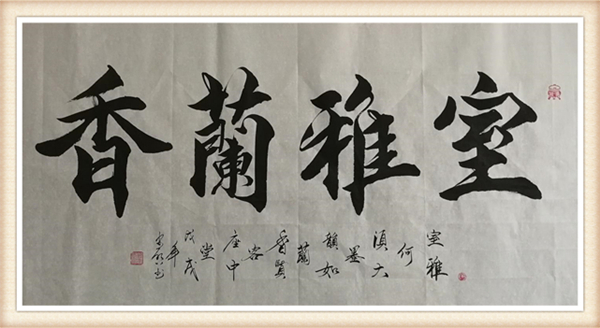 室雅蘭香
室雅
何
須大
墨
韻如
蘭
香賢
客
座中
堂
戊戌
年
书